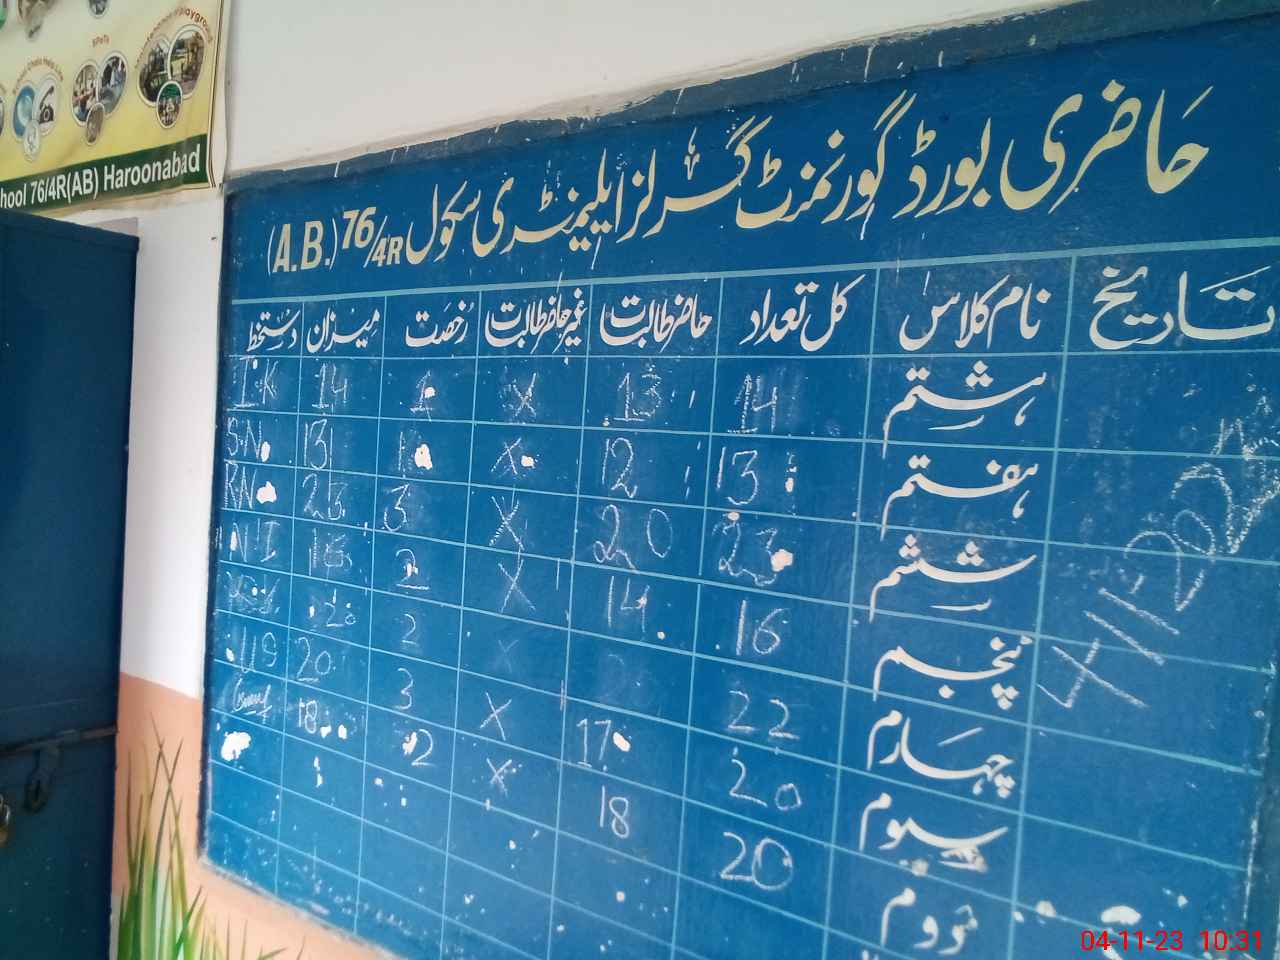 SPeTs
School 76/4R(AB) Haroonabad
حاضری بورڈ گورنمنٹ گرلز ایلیمنٹری سکول 76/4R (A.B.)
تاریخ نام کلاس کل تعداد حاضر طالبات غیر حاضر طالبات رخصت میزان دستخط
4-11-2023
ہشتم 14 13 X 1 14 I.K
ہفتم 13 12 X 1 13 S.N
ششم 23 20 X 3 23 R.N
پنجم 16 14 X 2 16 N I
چہارم 22 X 2
سیوم 20 17 X 3 20 U S
دوم 20 18 X 2 18
04-11-23 10:31